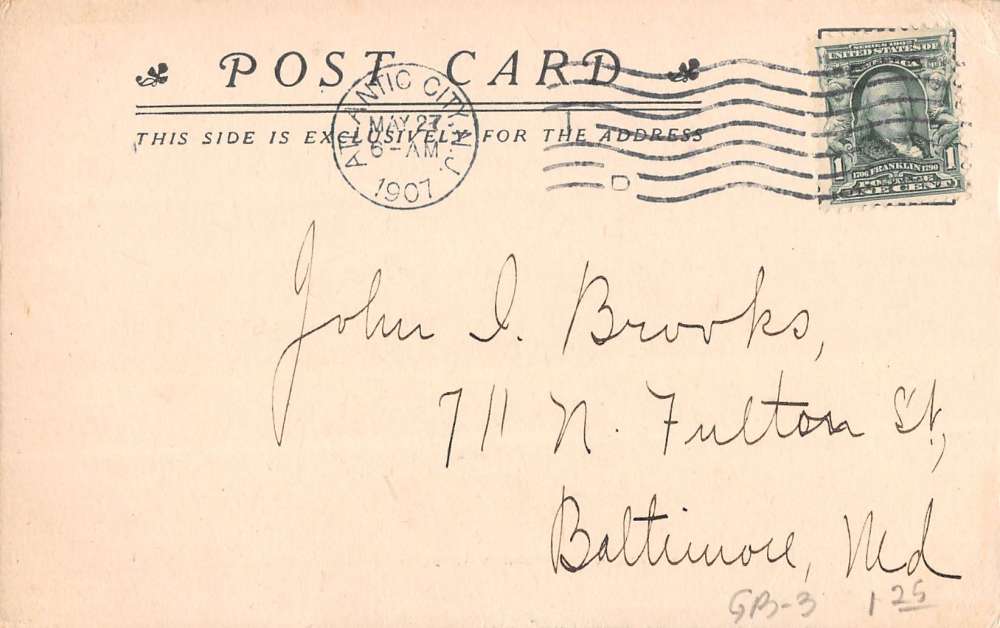 POST CARD
THIS SIDE IS EXCLUSIVELY FOR THE ADDRESS
ATLANTIC CITY, N.J.
MAY 27
6-AM
1907
D
SERIES 1902
UNITED STATES OF
AMERICA
1706 FRANKLIN 1790
1 POSTAGE 1
ONE CENT
John I. Brooks,
711 N. Fulton St,
Baltimore, Md
GB-3 1 25